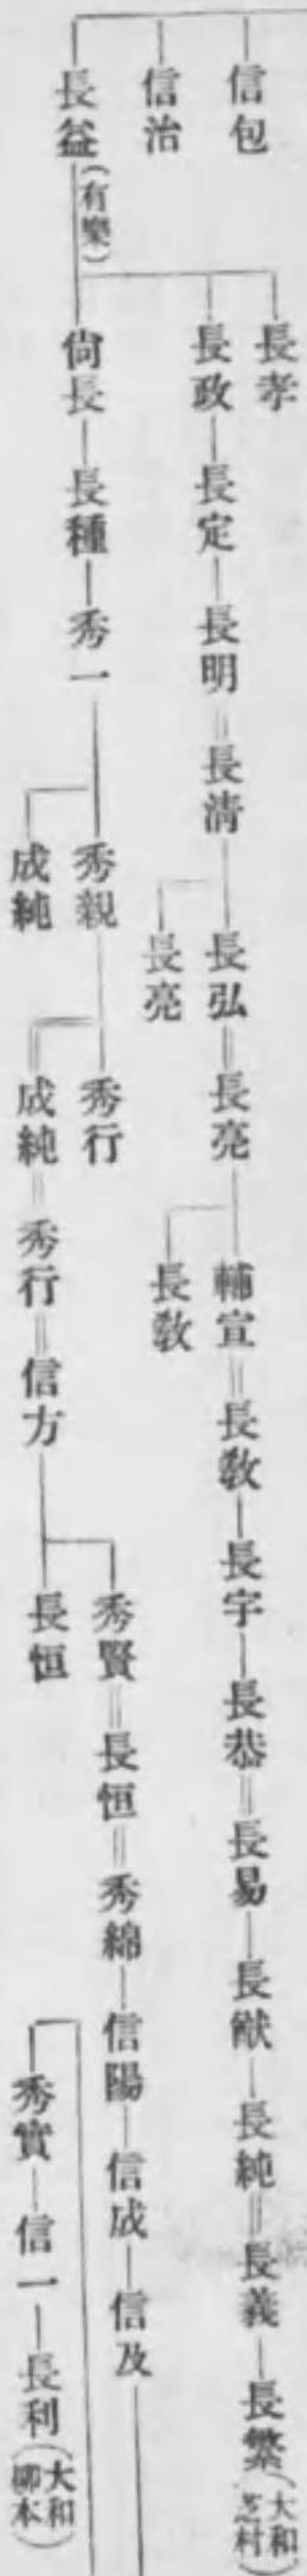 信包
信治
長益（有樂）
長孝
長政―長定―長明＝長清
長弘＝長亮
長亮
輔宣＝長敎―長宇―長恭＝長易―長猷―長純＝長義―長繁（大和芝村）
長敎
尙長―長種―秀一
秀親
成純
秀行
成純＝秀行＝信方
秀賢＝長恒＝秀綿―信陽―信成―信及
長恒
秀實―信一―長利（大和柳本）